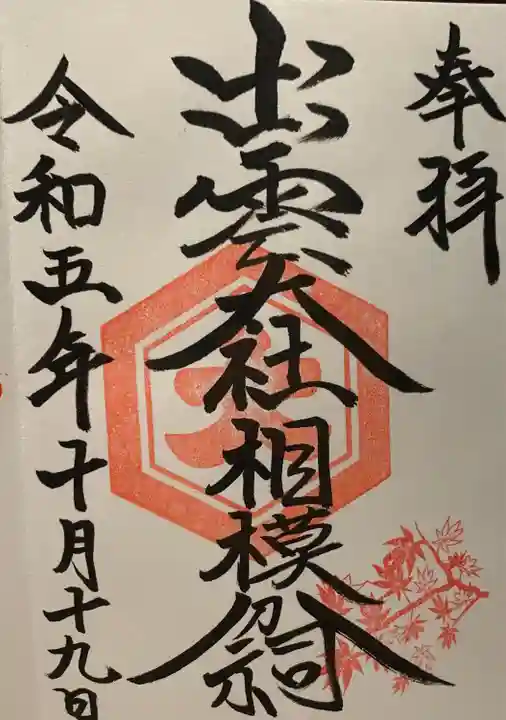 奉拜
出雲大社相模分祠
令和五年十月十九日
大